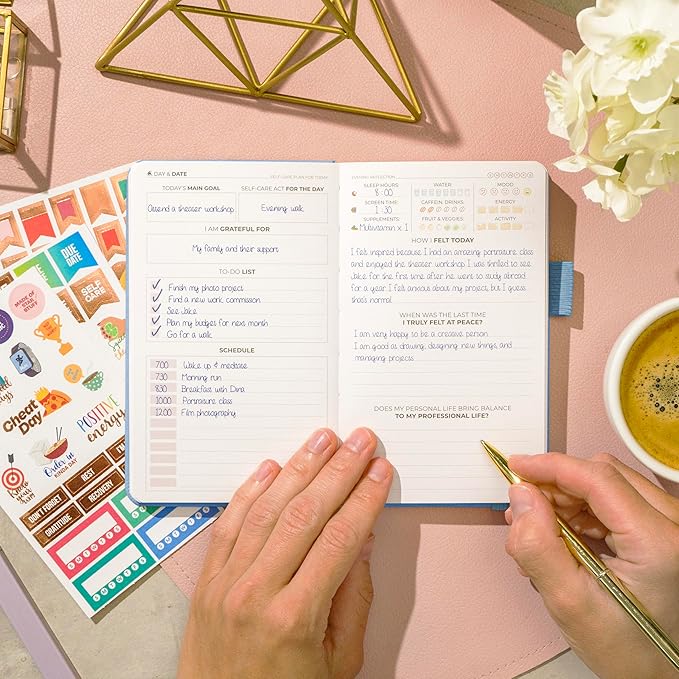 DAY & DATE
SELF-CARE PLAN FOR TODAY
TODAY'S MAIN GOAL
SELF-CARE ACT FOR THE DAY
Attend a theater workshop
Evening walk
I AM GRATEFUL FOR
My family and their support
TO-DO LIST
Finish my photo project
Find a new work commission
See Jake
Plan my budges for next month
Go for a walk
SCHEDULE
700 Wake up & medicase
730 Morning run
830 Breakfast with Dina
1000 Portraiture class
1200 Film photography
EVENING REFLECTION
SLEEP HOURS
8 : 00
WATER
MOOD
SCREEN TIME
1 : 30
CAFFEIN, DRINKS
ENERGY
SUPPLEMENTS
Multivitamin x 1
FRUIT & VEGGIES
ACTIVITY
HOW I FELT TODAY
I felt inspired because I had an amazing portraiture class
and enjoyed the theater workshop. I was thrilled to see
Jake for the first time after he went to study abroad
for a year. I felt anxious about my project, but I guess
that's normal.
WHEN WAS THE LAST TIME
I TRULY FELT AT PEACE?
I am very happy to be a creative person.
I am good at drawing, designing, new things, and
managing projects
DOES MY PERSONAL LIFE BRING BALANCE
TO MY PROFESSIONAL LIFE?
DUE
DATE
SELF
CARE
MADE OF
STARS
Cheat
Day
POSITIVE
energy
Order in
KINDA DAY
DON'T FORGET
REST
RECOVERY
GRATITUDE
S M T W T F S
S M T W T F S